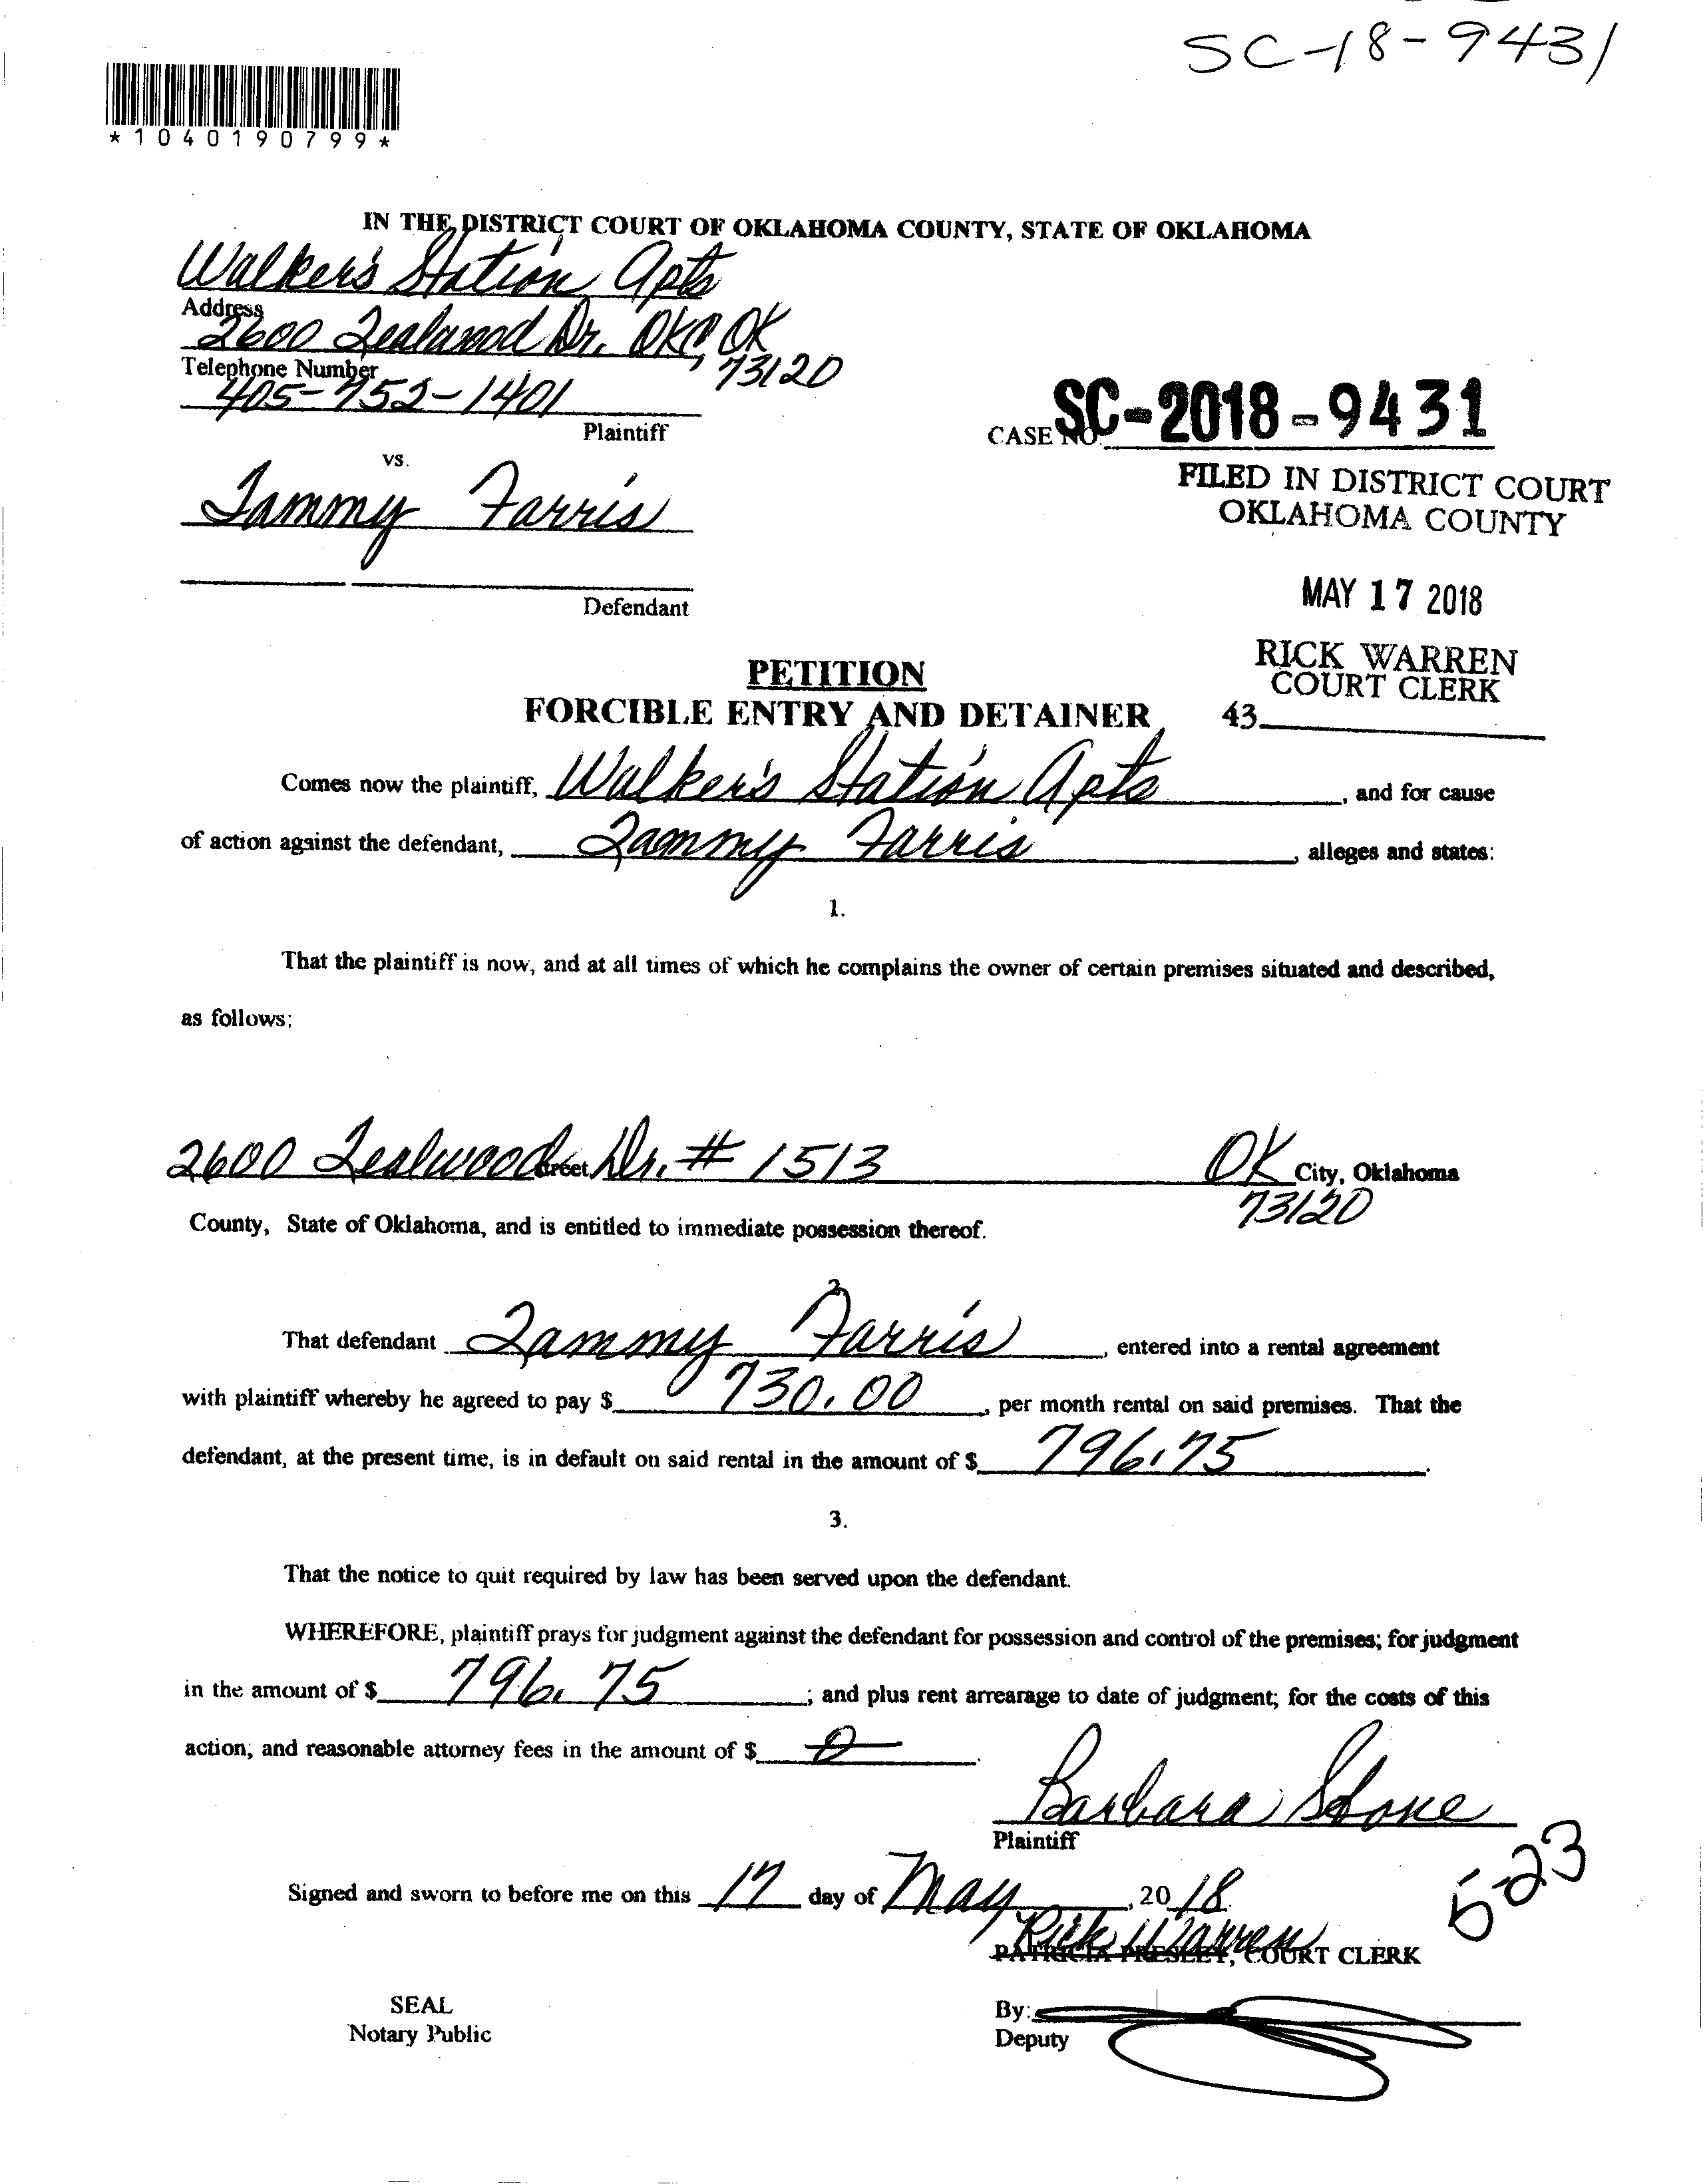 SC-18-9431
*1040190799*
IN THE DISTRICT COURT OF OKLAHOMA COUNTY, STATE OF OKLAHOMA
Walker's Station Apts
Address
2600 Tealwood Dr. OKC, OK
73120
Telephone Number
405-752-1401
Plaintiff
CASE NO. SC-2018-9431
vs.
FILED IN DISTRICT COURT
OKLAHOMA COUNTY
Tammy Farris
Defendant
MAY 17 2018
RICK WARREN
COURT CLERK
43
PETITION
FORCIBLE ENTRY AND DETAINER
Comes now the plaintiff, Walker's Station Apts, and for cause
of action against the defendant, Tammy Farris, alleges and states:
1.
That the plaintiff is now, and at all times of which he complains the owner of certain premises situated and described,
as follows;
2600 Tealwood Street Dr. # 1513 OK City, Oklahoma
73120
County, State of Oklahoma, and is entitled to immediate possession thereof.
2.
That defendant Tammy Farris, entered into a rental agreement
with plaintiff whereby he agreed to pay $ 730.00, per month rental on said premises. That the
defendant, at the present time, is in default on said rental in the amount of $ 796.75.
3.
That the notice to quit required by law has been served upon the defendant.
WHEREFORE, plaintiff prays for judgment against the defendant for possession and control of the premises; for judgment
in the amount of $ 796.75; and plus rent arrearage to date of judgment; for the costs of this
action; and reasonable attorney fees in the amount of $ 0.
Barbara Stone
Plaintiff
5-23
Signed and sworn to before me on this 17 day of May, 2018
Rick Warren
PATRICIA PRESLEY, COURT CLERK
SEAL
Notary Public
By:
Deputy